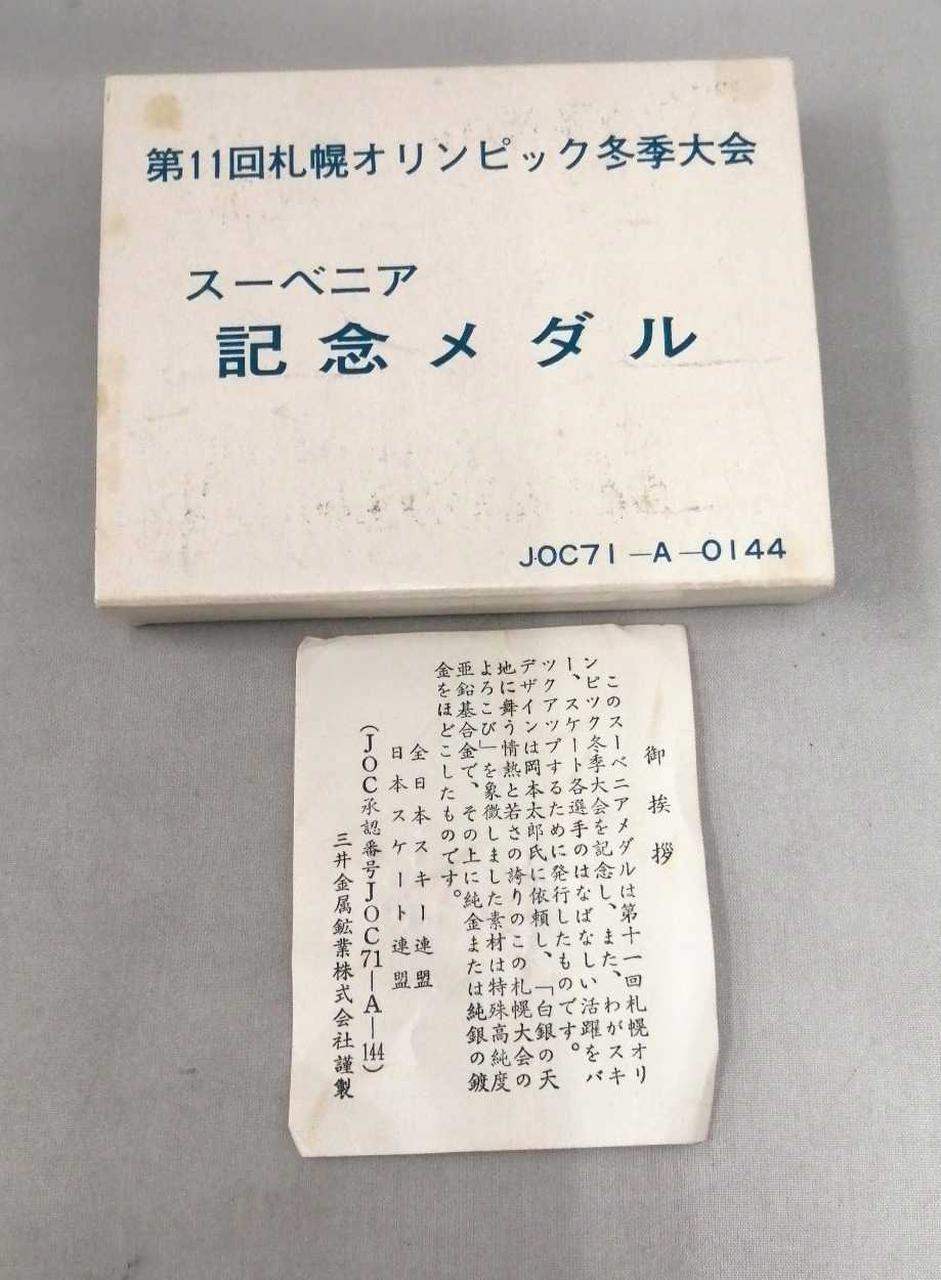 第11回札幌オリンピック冬季大会
スーベニア
記念メダル
JOC71－A－0144
御挨拶
このスーベニアメダルは第十一回札幌オリ
ンピツク冬季大会を記念し、また、わがスキ
ー、スケート各選手のはなばなしい活躍をバ
ツクアツプするために発行したものです。
デザインは岡本太郎氏に依頼し、「白銀の天
地に舞う情熱と若さの誇りのこの札幌大会の
よろこび」を象徴しました素材は特殊高純度
亜鉛基合金で、その上に純金または純銀の鍍
金をほどこしたものです。
全日本スキー連盟
日本スケート連盟
（JOC承認番号JOC71－A－144）
三井金属鉱業株式会社謹製